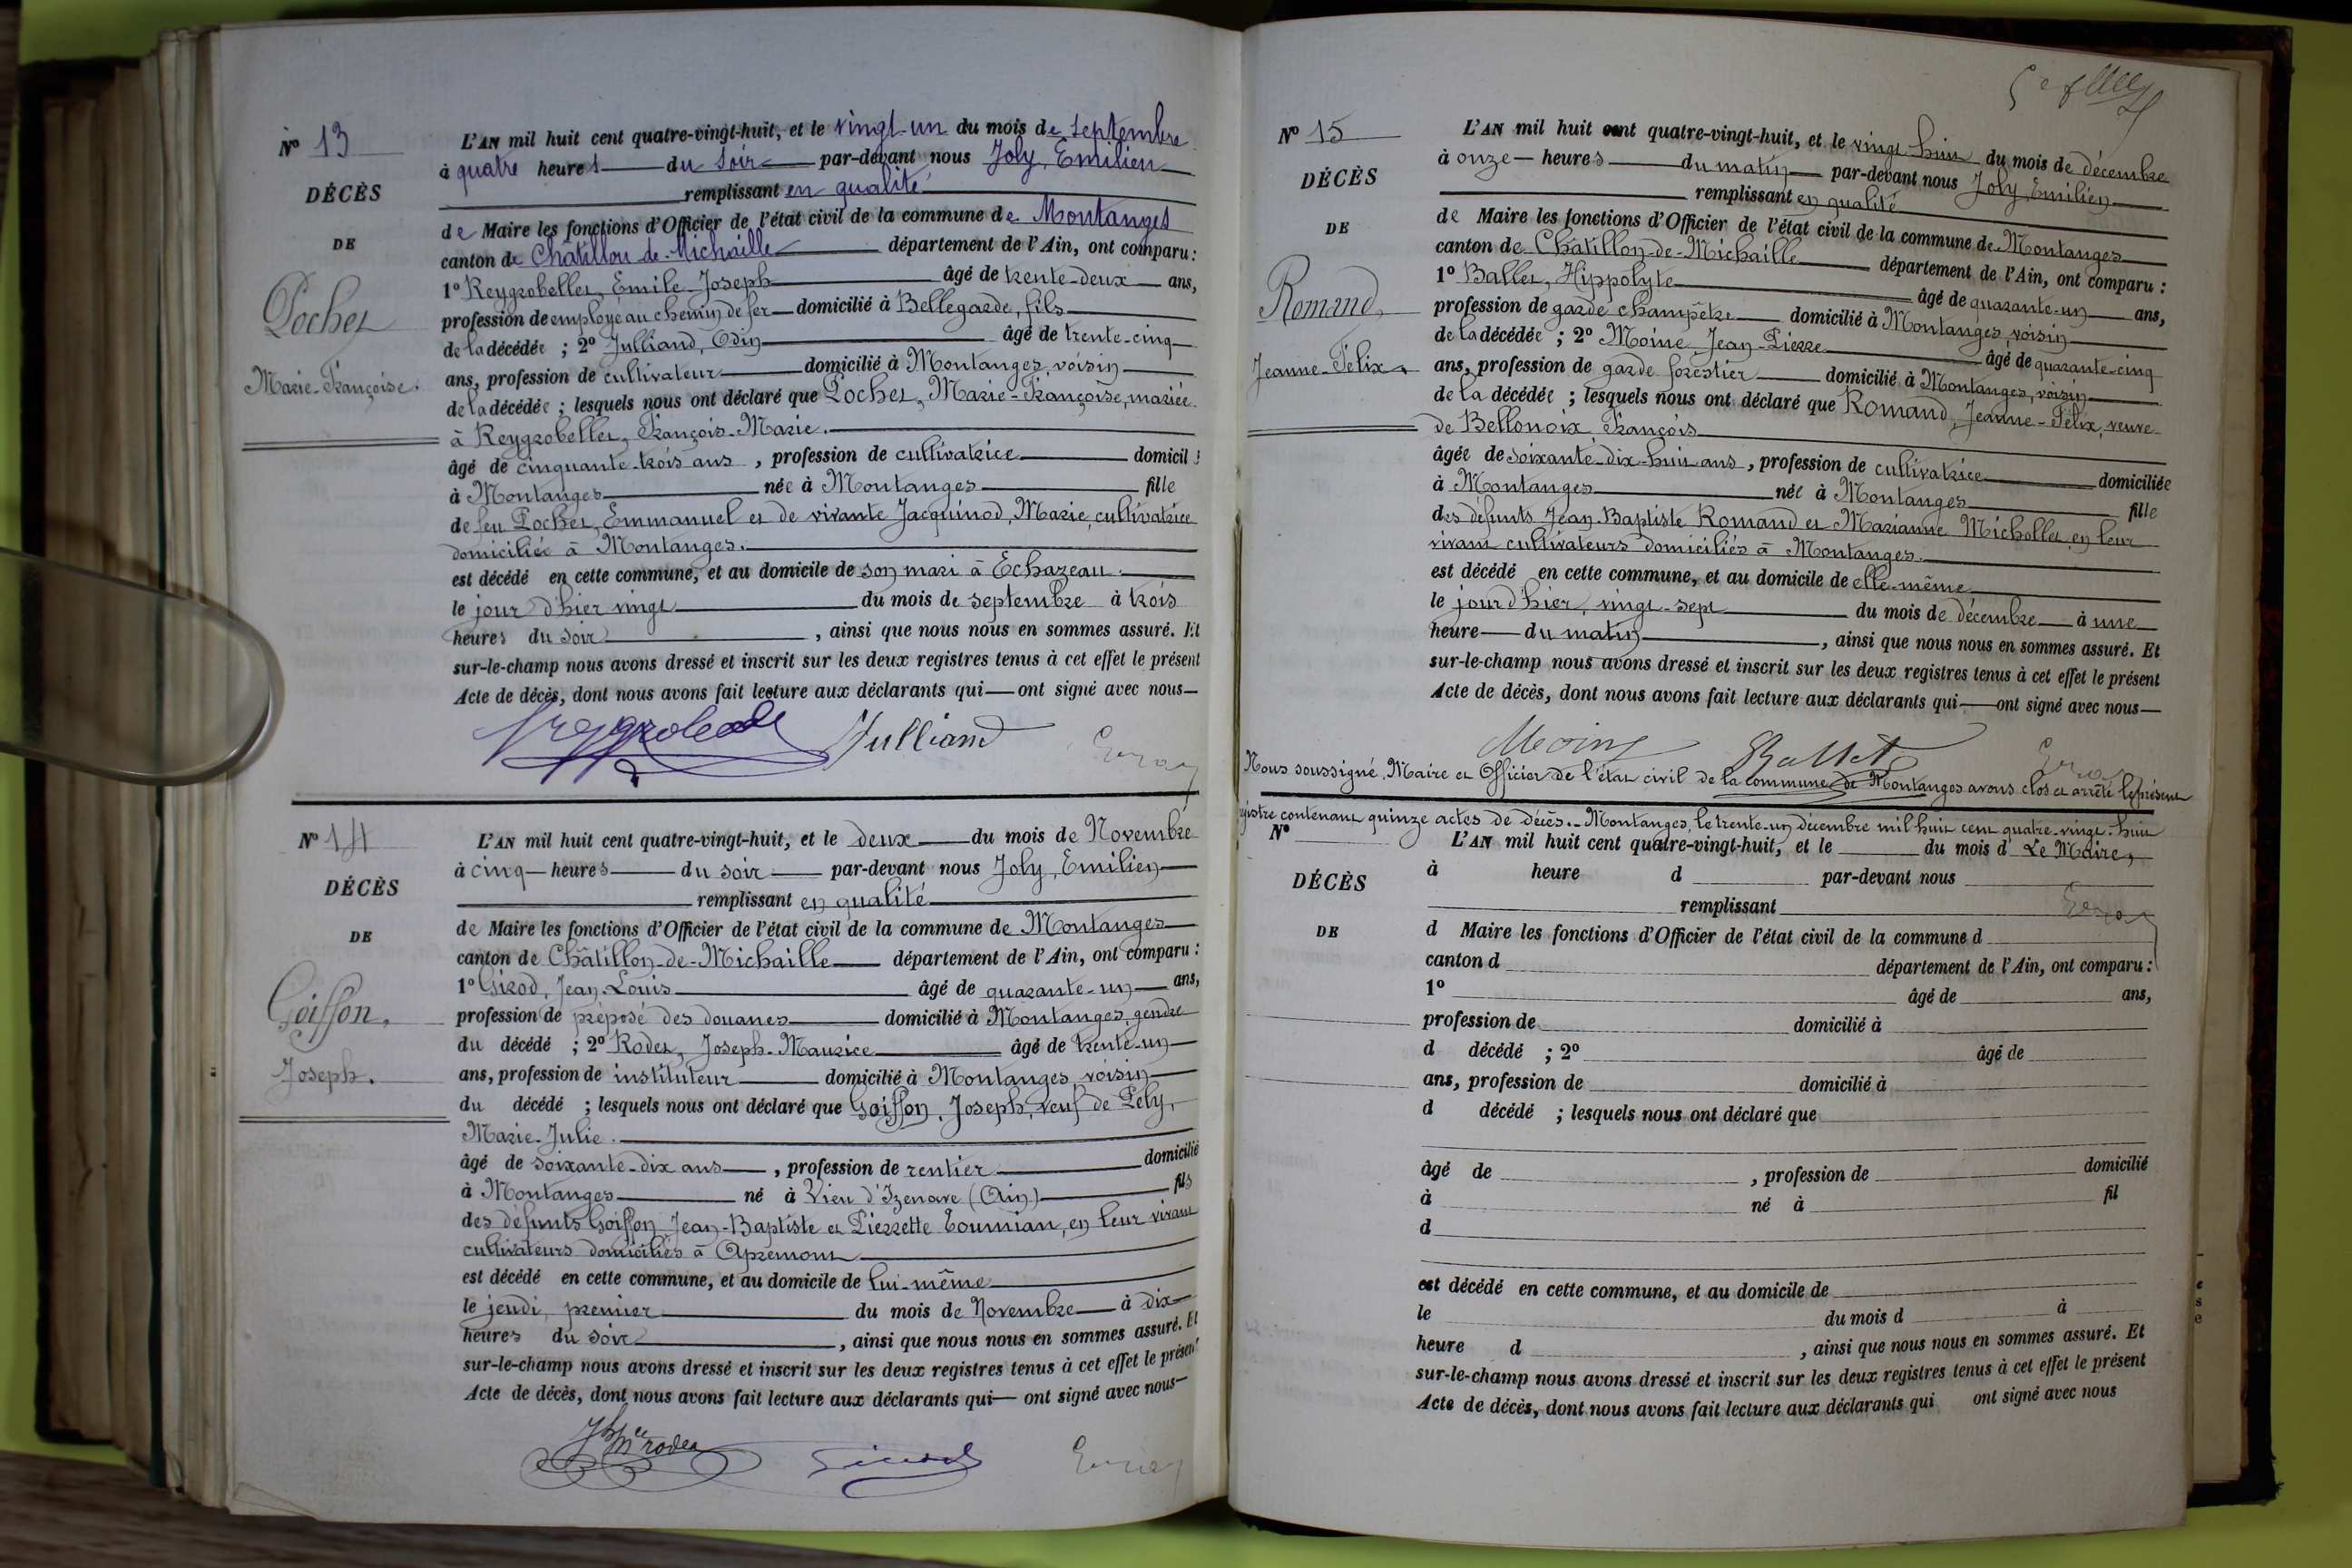 N° 13
DÉCÈS
DE
Pochet
Marie-Françoise.
L'AN mil huit cent quatre-vingt-huit, et le vingt-un du mois de Septembre
à quatre heures du soir par-devant nous Joly, Emilien
remplissant en qualité
de Maire les fonctions d'Officier de l'état civil de la commune de Montanges
canton de Châtillon-de-Michaille département de l'Ain, ont comparu :
1° Reygrobellet, Emile Joseph âgé de trente-deux ans,
profession de employé au chemin de fer domicilié à Bellegarde, fils
de la décédée ; 2° Julliand, Odin âgé de trente-cinq
ans, profession de cultivateur domicilié à Montanges, voisin
de la décédée ; lesquels nous ont déclaré que Pochet, Marie-Françoise, mariée
à Reygrobellet, François-Marie.
âgé de cinquante-trois ans, profession de cultivatrice domicil
à Montanges née à Montanges fille
de feu Pochet, Emmanuel et de vivante Jacquinod, Marie, cultivatrice
domiciliée à Montanges.
est décédé en cette commune, et au domicile de son mari à Echazeau.
le jour d'hier vingt du mois de septembre à trois
heures du soir, ainsi que nous nous en sommes assuré. Et
sur-le-champ nous avons dressé et inscrit sur les deux registres tenus à cet effet le présent
Acte de décès, dont nous avons fait lecture aux déclarants qui ont signé avec nous
Julliand
N° 14
DÉCÈS
DE
Goiffon,
Joseph.
L'AN mil huit cent quatre-vingt-huit, et le deux du mois de Novembre
à cinq heures du soir par-devant nous Joly, Emilien
remplissant en qualité
de Maire les fonctions d'Officier de l'état civil de la commune de Montanges
canton de Châtillon-de-Michaille département de l'Ain, ont comparu :
1° Girod, Jean-Louis âgé de quarante-un ans,
profession de préposé des douanes domicilié à Montanges, gendre
du décédé ; 2° Rodet, Joseph-Maurice âgé de trente-un
ans, profession de instituteur domicilié à Montanges, voisin
du décédé ; lesquels nous ont déclaré que Goiffon, Joseph, veuf de Pély,
Marie-Julie.
âgé de soixante-dix ans, profession de rentier domicilié
à Montanges né à Vieu d'Izenave (Ain) fils
des défunts Goiffon Jean-Baptiste et Pierrette Tournian, en leur vivant
cultivateurs domiciliés à Apremont
est décédé en cette commune, et au domicile de lui-même
le jeudi, premier du mois de Novembre à dix
heures du soir, ainsi que nous nous en sommes assuré. Et
sur-le-champ nous avons dressé et inscrit sur les deux registres tenus à cet effet le présent
Acte de décès, dont nous avons fait lecture aux déclarants qui ont signé avec nous
N° 15
DÉCÈS
DE
Romand,
Jeanne-Félix.
L'AN mil huit cent quatre-vingt-huit, et le vingt huit du mois de décembre
à onze heures du matin par-devant nous Joly, Emilien
remplissant en qualité
de Maire les fonctions d'Officier de l'état civil de la commune de Montanges
canton de Châtillon-de-Michaille département de l'Ain, ont comparu :
1° Ballet, Hippolyte âgé de quarante-un ans,
profession de garde champêtre domicilié à Montanges, voisin
de la décédée ; 2° Moine Jean-Pierre âgé de quarante-cinq
ans, profession de garde forestier domicilié à Montanges, voisin
de la décédée ; lesquels nous ont déclaré que Romand, Jeanne-Félix, veuve
de Bellonoix François
âgée de soixante-dix-huit ans, profession de cultivatrice domiciliée
à Montanges née à Montanges fille
des défunts Jean-Baptiste Romand et Marianne Michollet en leur
vivant cultivateurs domiciliés à Montanges.
est décédé en cette commune, et au domicile de elle-même
le jour d'hier, vingt-sept du mois de décembre à une
heure du matin, ainsi que nous nous en sommes assuré. Et
sur-le-champ nous avons dressé et inscrit sur les deux registres tenus à cet effet le présent
Acte de décès, dont nous avons fait lecture aux déclarants qui ont signé avec nous
Moine Ballet
Nous soussigné, Maire et Officier de l'état civil de la commune de Montanges avons clos et arrêté le présent
gistre contenant quinze actes de décès. Montanges, le trente-un décembre mil huit cent quatre-vingt-huit
N°
DÉCÈS
DE
L'AN mil huit cent quatre-vingt-huit, et le du mois d Le Maire,
à heure d par-devant nous
remplissant
d Maire les fonctions d'Officier de l'état civil de la commune d
canton d département de l'Ain, ont comparu :
1° âgé de ans,
profession de domicilié à
d décédé ; 2° âgé de
ans, profession de domicilié à
d décédé ; lesquels nous ont déclaré que
âgé de , profession de domicilié
à né à fil
d
est décédé en cette commune, et au domicile de
le du mois d à
heure d , ainsi que nous nous en sommes assuré. Et
sur-le-champ nous avons dressé et inscrit sur les deux registres tenus à cet effet le présent
Acte de décès, dont nous avons fait lecture aux déclarants qui ont signé avec nous